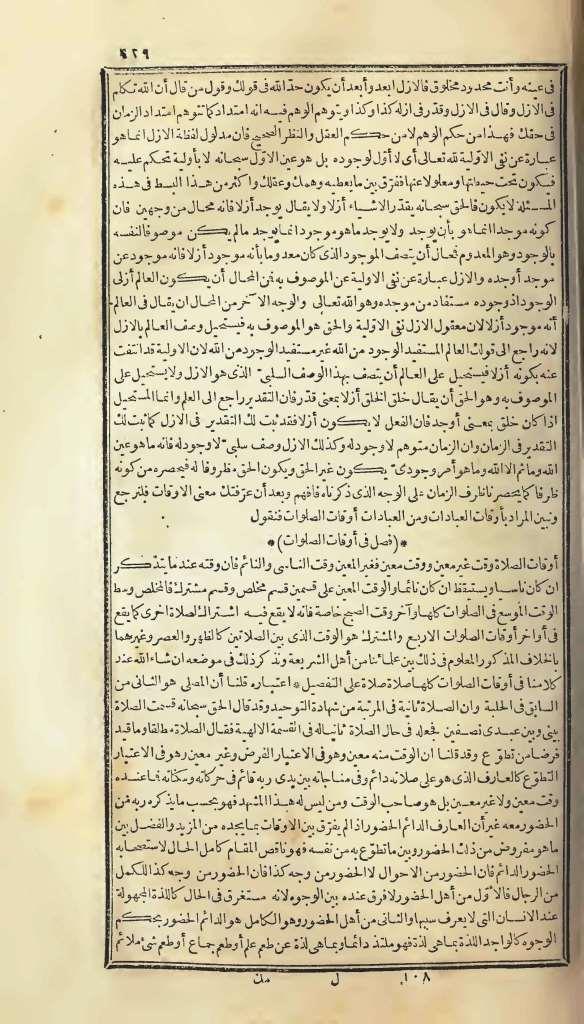 ٤٢٩
فى عينه وأنت محدود مخلوق فالازل ابعد وأبعد أن يكون حد الله فى قولك وقول من قال أن الله تكلم
فى الازل وقال فى الازل وقدر فى ازله كذا وكذا ويتوهم الوهم فيه انه امتداد كما تتوهم امتداد الزمان
فى حقك فهذا من حكم الوهم لا من حكم العقل والنظر الصحيح فان مدلول لفظة الازل انما هو
عبارة عن نفى الاولية لله تعالى أى لا أول لوجوده بل هو عين الاول سبحانه لا بأولية تحكم عليه
فيكون تحت حيطتها ومعلولا عنها ففرق بين ما يعطيه وهمك وعقلك وأكثر من هذا البسط فى هذه
المسئلة لا يكون فالحق سبحانه يقدر الاشياء أزلا ولا يقال يوجد أزلا فانه محال من وجهين فان
كونه موجدا انما هو بأن يوجد ولا يوجد ما هو موجود انما يوجد مالم يكن موصوفا لنفسه
بالوجود وهو المعدوم فمحال أن يتصف الموجود الذى كان معدوما بأنه موجود أزلا فانه موجود عن
موجد أوجده والازل عبارة عن نفى الاولية عن الموصوف به فمن المحال أن يكون العالم أزلى
الوجود اذ وجوده مستفاد من موجده وهو الله تعالى والوجه الآخر من المحال ان يقال فى العالم
أنه موجود أزلا لان معقول الازل نفى الاولية والحق هو الموصوف به فيستحيل وصف العالم بالازل
لانه راجع الى قولك العالم المستفيد الوجود من الله غير مستفيد الوجود من الله لان الاولية قد انتفت
عنه بكونه أزلا فيستحيل على العالم أن يتصف بهذا الوصف السلبى الذى هو الازل ولا يستحيل على
الموصوف به وهو الحق أن يقال خلق الخلق أزلا بمعنى قدر فان التقدير راجع الى العلم وانما المستحيل
اذا كان خلق بمعنى أوجد فان الفعل لا يكون أزلا فقد ثبت لك التقدير فى الازل كما ثبت لك
التقدير فى الزمان وان الزمان متوهم لا وجود له وكذلك الازل وصف سلبى لا وجود له فانه ما هو عين
الله وما ثم الا الله وما هو أمر وجودى يكون غير الحق ويكون الحق مظروفا له فيحصره من كونه
ظرفا كما يحصرنا ظرف الزمان على الوجه الذى ذكرناه فافهم وبعد أن عرفتك معنى الاوقات فلنرجع
ونبين المراد بأوقات العبادات ومن العبادات أوقات الصلوات فنقول
*(فصل فى أوقات الصلوات)*
أوقات الصلاة وقت غير معين ووقت معين فغير المعين وقت الناسى والنائم فان وقته عند ما يتذكر
ان كان ناسيا ويستيقظ ان كان نائما والوقت المعين على قسمين قسم مخلص وقسم مشترك فالمخلص وسط
الوقت الموسع فى الصلوات كلها وآخر وقت الصبح خاصة فانه لا يقع فيه اشتراك لصلاة اخرى كما يقع
فى أواخر أوقات الصلوات الاربع والمشترك هو الوقت الذى بين الصلاتين كالظهر والعصر وغيرهما
بالخلاف المذكور المعلوم فى ذلك بين علمائنا من أهل الشريعة ونذكر ذلك فى موضعه ان شاء الله عند
كلامنا فى أوقات الصلوات كلها صلاة صلاة على التفصيل * اعتباره قلنا أن المصلى هو الثانى من
السابق فى الحلبة وان الصلاة ثانية فى المرتبة من شهادة التوحيد وقد قال الحق سبحانه قسمت الصلاة
بينى وبين عبدى نصفين فجعله فى حال الصلاة ثانيا له فى القسمة الالهية فقال الصلاة مطلقا وما قيد
فرضا من تطوع وقد قلنا ان الوقت منه معين وهو فى الاعتبار الفرض وغير معين وهو فى الاعتبار
التطوع كالعارف الذى هو على صلاته دائم وفى مناجاته بين يدى ربه قائم فى حركاته وسكناته فما عنده
وقت معين ولا غير معين بل هو صاحب الوقت ومن ليس له هذا المشهد فهو بحسب ما يذكره ربه فمن
الحضور معه غير أن العارف الدائم الحضور اذا لم يفرق بين الاوقات بما يجده من المزيد والفضل بين
ما هو مفروض من ذلك الحضور وبين ما تطوع به من نفسه فهو ناقص المقام كامل الحال لاستصحابه
الحضور الدائم فان الحضور من الاحوال لا الحضور من وجه كذا فان الحضور من وجه كذا للكمل
من الرجال فالاول من أهل الحضور لا فرق عنده بين الوجوه لانه مستغرق فى الحال كاللذة المجهولة
عند الانسان التى لا يعرف سببها والثانى من أهل الحضور وهو الكامل هو الدائم الحضور بحكم
الوجوه كالواجد اللذة بما هى لذة فهو ملتذ دائما وبما هى لذة عن طعم علم أو طعم جماع أو طعم شئ ملائم
١٠٨ ل مك